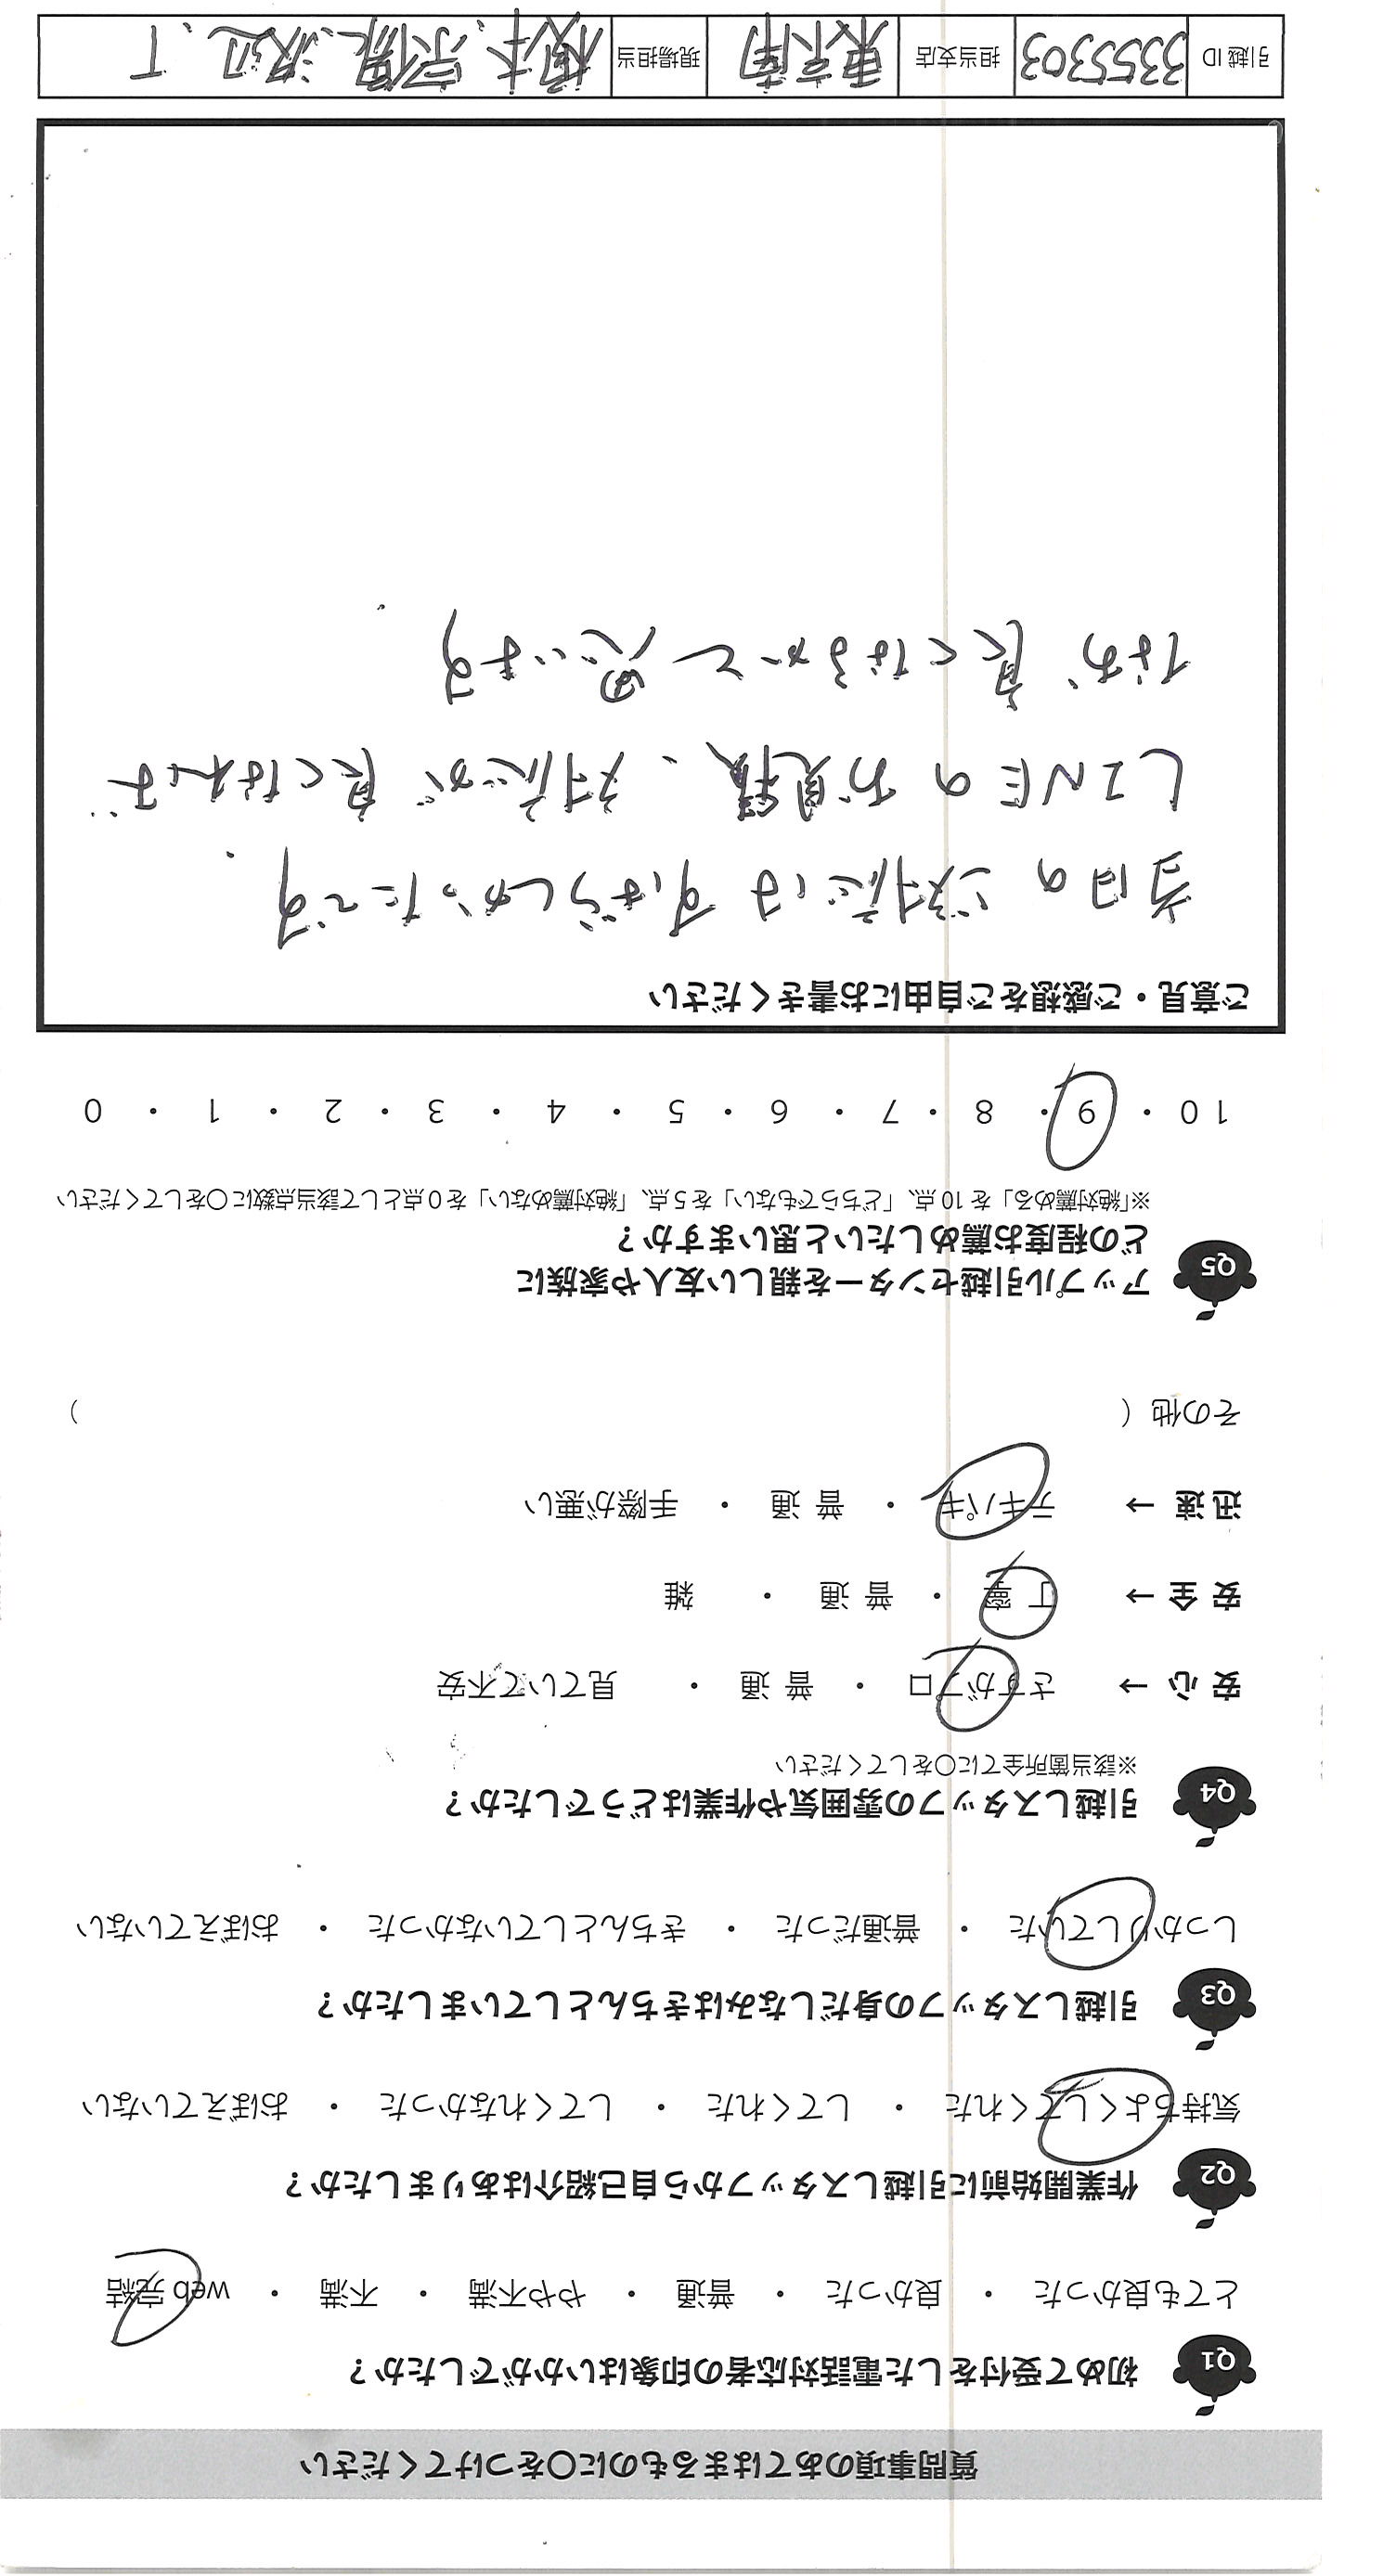 質問事項のあてはまるものに○をつけてください
Q1 初めて受付をした電話対応者の印象はいかがでしたか？
とても良かった ・ 良かった ・ 普通 ・ やや不満 ・ 不満 ・ web 完結
Q2 作業開始前に引越しスタッフから自己紹介はありましたか？
気持ちよくしてくれた ・ してくれた ・ してくれなかった ・ おぼえていない
Q3 引越しスタッフの身だしなみはきちんとしていましたか？
しっかりしていた ・ 普通だった ・ きちんとしていなかった ・ おぼえていない
Q4 引越しスタッフの雰囲気や作業はどうでしたか？
※該当箇所全てに○をしてください
安 心 → さすがプロ ・ 普 通 ・ 見ていて不安
安 全 → 丁 寧 ・ 普 通 ・ 雑
迅 速 → テキパキ ・ 普 通 ・ 手際が悪い
その他（ ）
Q5 アップル引越センターを親しい友人や家族に
どの程度お薦めしたいと思いますか？
※「絶対薦める」を 10 点、「どちらでもない」を 5 点、「絶対薦めない」を 0 点として該当点数に○をしてください
10 ・ 9 ・ 8 ・ 7 ・ 6 ・ 5 ・ 4 ・ 3 ・ 2 ・ 1 ・ 0
ご意見・ご感想をご自由にお書きください
当日のご対応はすばらしかったです.
LINEのお見積、対応が良くなれば
なお良くなるかと思います.
引越 ID 3355303 担当支店 東京南 現場担当 榎本、宗像、渡辺、T